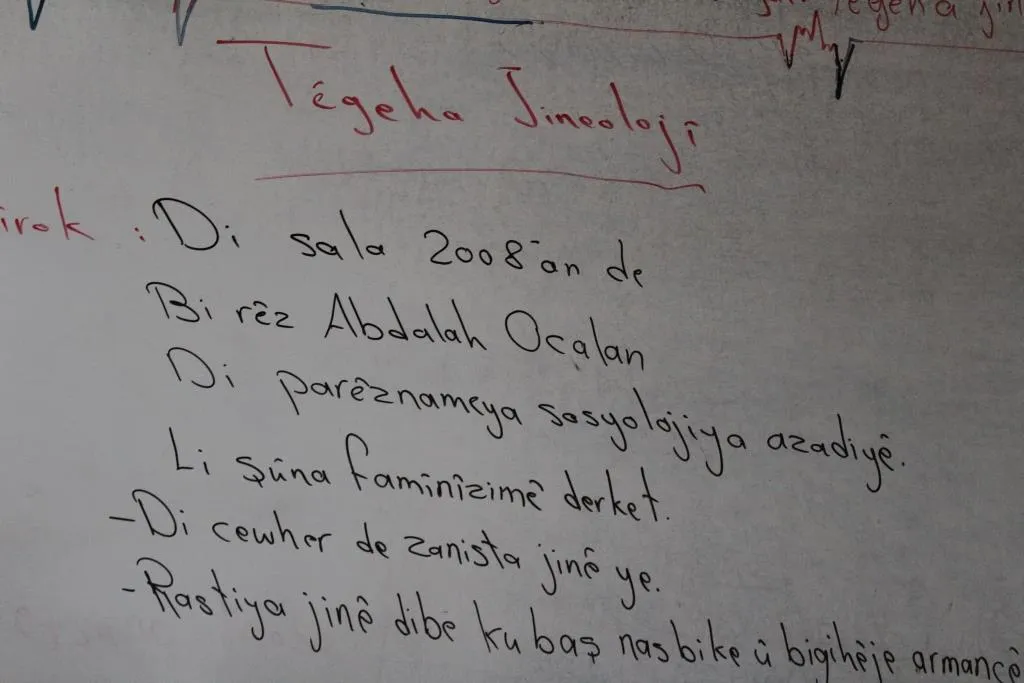 têgeha jin
Têgeha Jineolojî
irok : Di sala 2008-an de
Bi rêz Abdalah Ocalan
Di parêznameya sosyolojiya azadiyê.
Li şûna famînîzimê derket.
-Di cewher de zanista jinê ye.
-Rastiya jinê dibe ku baş nas bike û bigihêje armancê